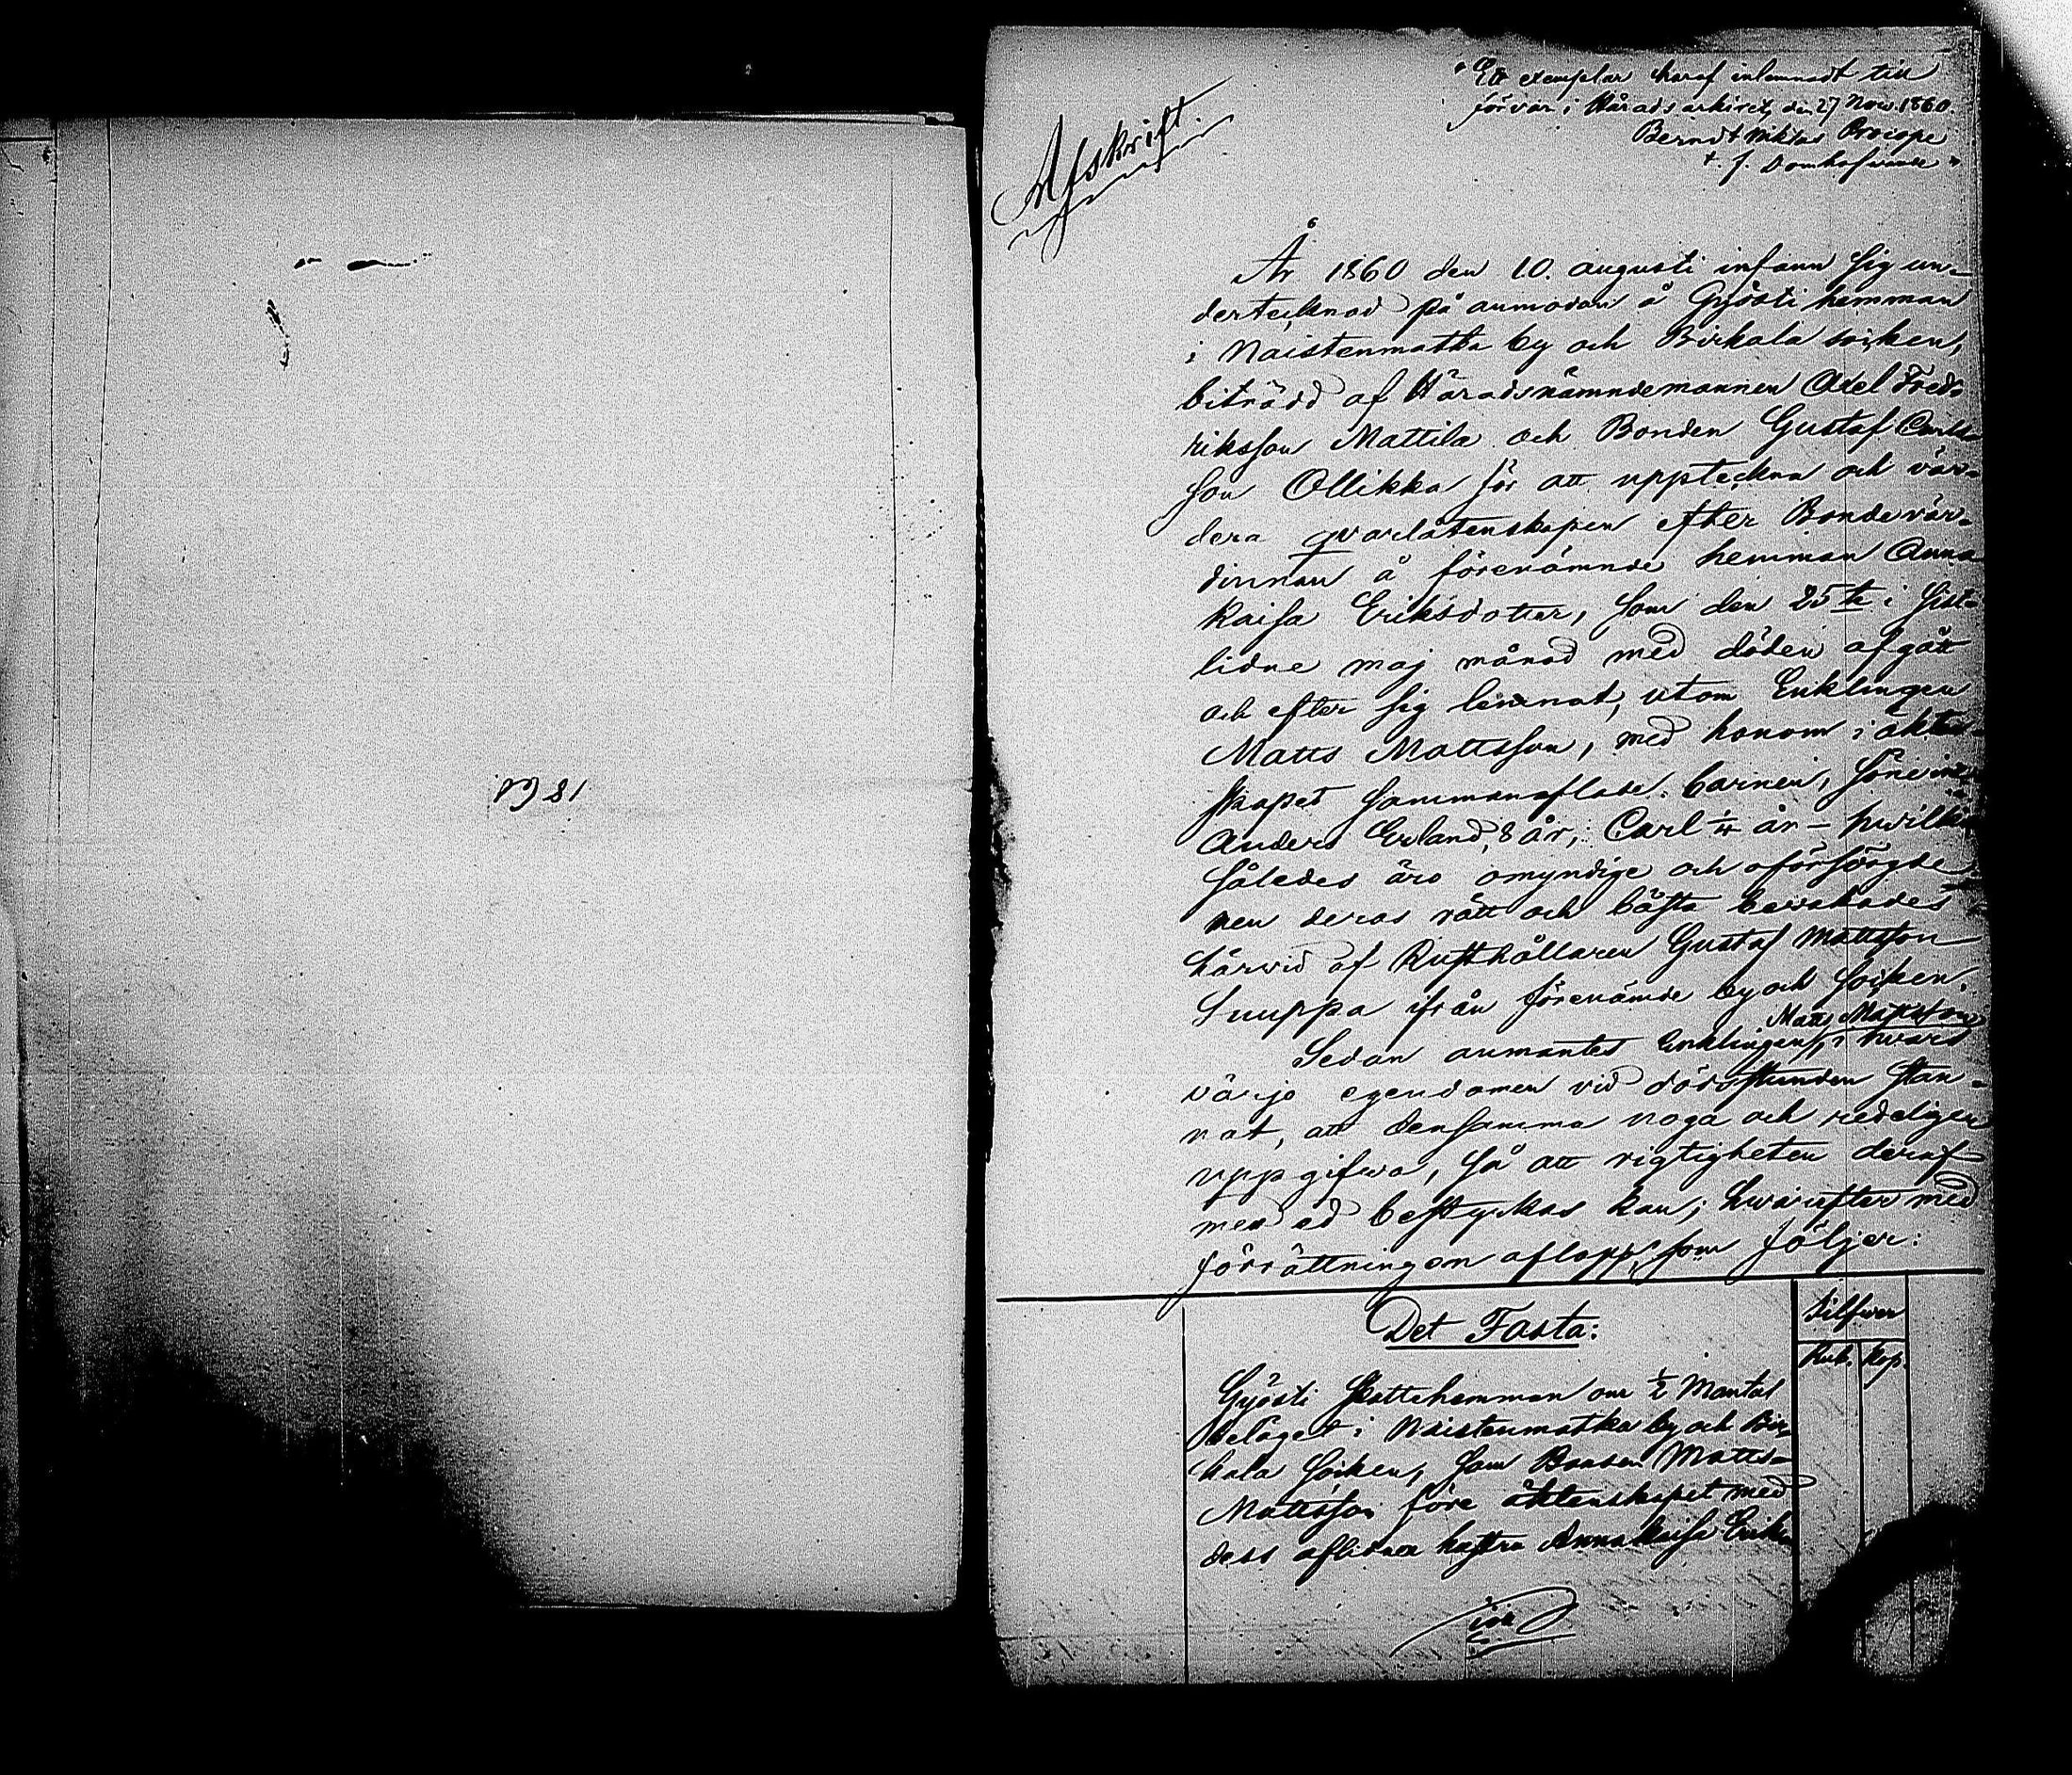 Afskrift.
"Ett exemplar häraf inlemnadt till
förvar i Härads arkivet, den 27 Nov. 1860.
Berndt Niklas Procope
t. f. Domhafvande"
År 1860 den 10. augusti infann sig un-
dertecknad på anmodan å Gjösti hemman
i Naistenmatka by och Birkala socken,
biträdd af Häradsnämndemannen Axel Fred-
riksson Mattila och Bonden Gustaf Carls-
son Ollikka för att uppteckna och vär-
dera qvarlåtenskapen efter Bondevär-
dinnan å förenämnde hemman Anna
Kaisa Eriksdotter, som den 25te i sist-
lidne maj månad med döden afgått
och efter sig lemnat, utom Enklingen
Matts Mattsson, med honom i äkten-
skapet sammanaflade barnen, sönerne
Anders Erland, 8 år, Carl 1/4 år - hwilka
således äro omyndige och oförsörgde
men deras rätt och bästa bevakades
härvid af Rusthållaren Gustaf Mattsson
Suuppa ifrån förenämde by och socken.
Sedan anmantes Enklingen Matts Mattsson, i hwars
värjo egendomen vid dödsstunden stan-
nat, att densamma noga och redeligen
uppgifwa, så att rigtigheten deraf
med ed bestyrkas kan; hwarefter med
förrättningen aflopp, som följer:
Det Fasta:
Silfwer
Rub. Kop.
Gjösti Skattehemman om 1/2 Mantal
beläget i Naistenmatka by och Bir-
kala socken, som Bonden Matts
Mattsson före äktenskapet med
dess aflidna hustru Anna Kaisa Eriks-
1860.